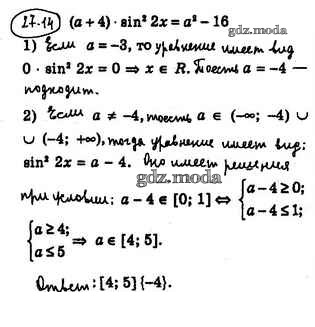 27.14 (a + 4) · sin² 2x = a² – 16
gdz.moda
1) Если a = –3, то уравнение имеет вид
0 · sin² 2x = 0 ⇒ x ∈ R. То есть a = –4 —
подходит.
2) Если a ≠ –4, то есть a ∈ (–∞; –4) ∪
∪ (–4; +∞), тогда уравнение имеет вид:
sin² 2x = a – 4. Оно имеет решения
gdz.moda
при условии: a – 4 ∈ [0; 1] ⇔ { a – 4 ≥ 0;
a – 4 ≤ 1;
{ a ≥ 4;
a ≤ 5 ⇒ a ∈ [4; 5].
Ответ: [4; 5] {–4}.